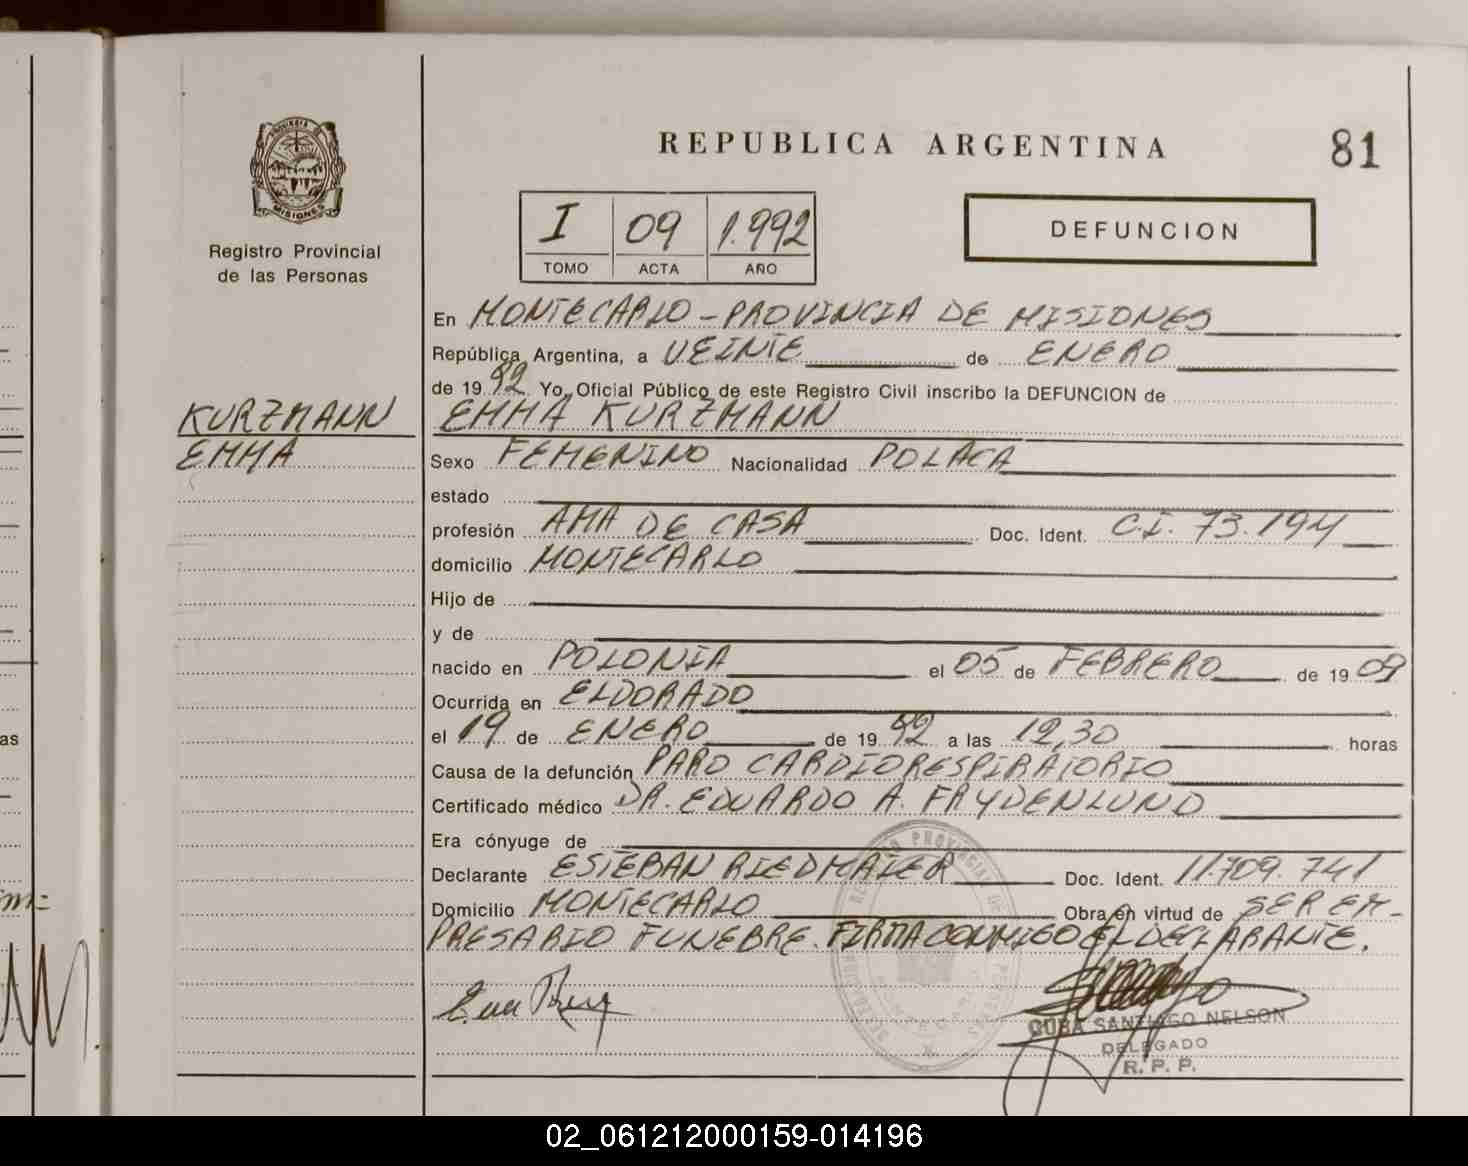 PROVINCIA DE
MISIONES
Registro Provincial
de las Personas
KURZMANN
EMMA
REPUBLICA ARGENTINA
81
I 09 1.992
TOMO ACTA AÑO
DEFUNCION
En MONTECARLO - PROVINCIA DE MISIONES
República Argentina, a VEINTE de ENERO
de 1992 Yo, Oficial Público de este Registro Civil inscribo la DEFUNCION de
EMMA KURZMANN
Sexo FEMENINO Nacionalidad POLACA
estado
profesión AMA DE CASA Doc. Ident. C.I. 73.194
domicilio MONTECARLO
Hijo de
y de
nacido en POLONIA el 05 de FEBRERO de 1909
Ocurrida en ELDORADO
el 19 de ENERO de 1992 a las 12,30 horas
Causa de la defunción PARO CARDIORESPIRATORIO
Certificado médico DR. EDUARDO A. FRYDENLUND
Era cónyuge de
Declarante ESTEBAN RIEDMAIER Doc. Ident. 11.709.741
Domicilio MONTECARLO Obra en virtud de SER EM-
PRESARIO FUNEBRE. FIRMA CONMIGO EL DECLARANTE.
CUBA SANTIAGO NELSON
DELEGADO
R. P. P.
02_061212000159-014196